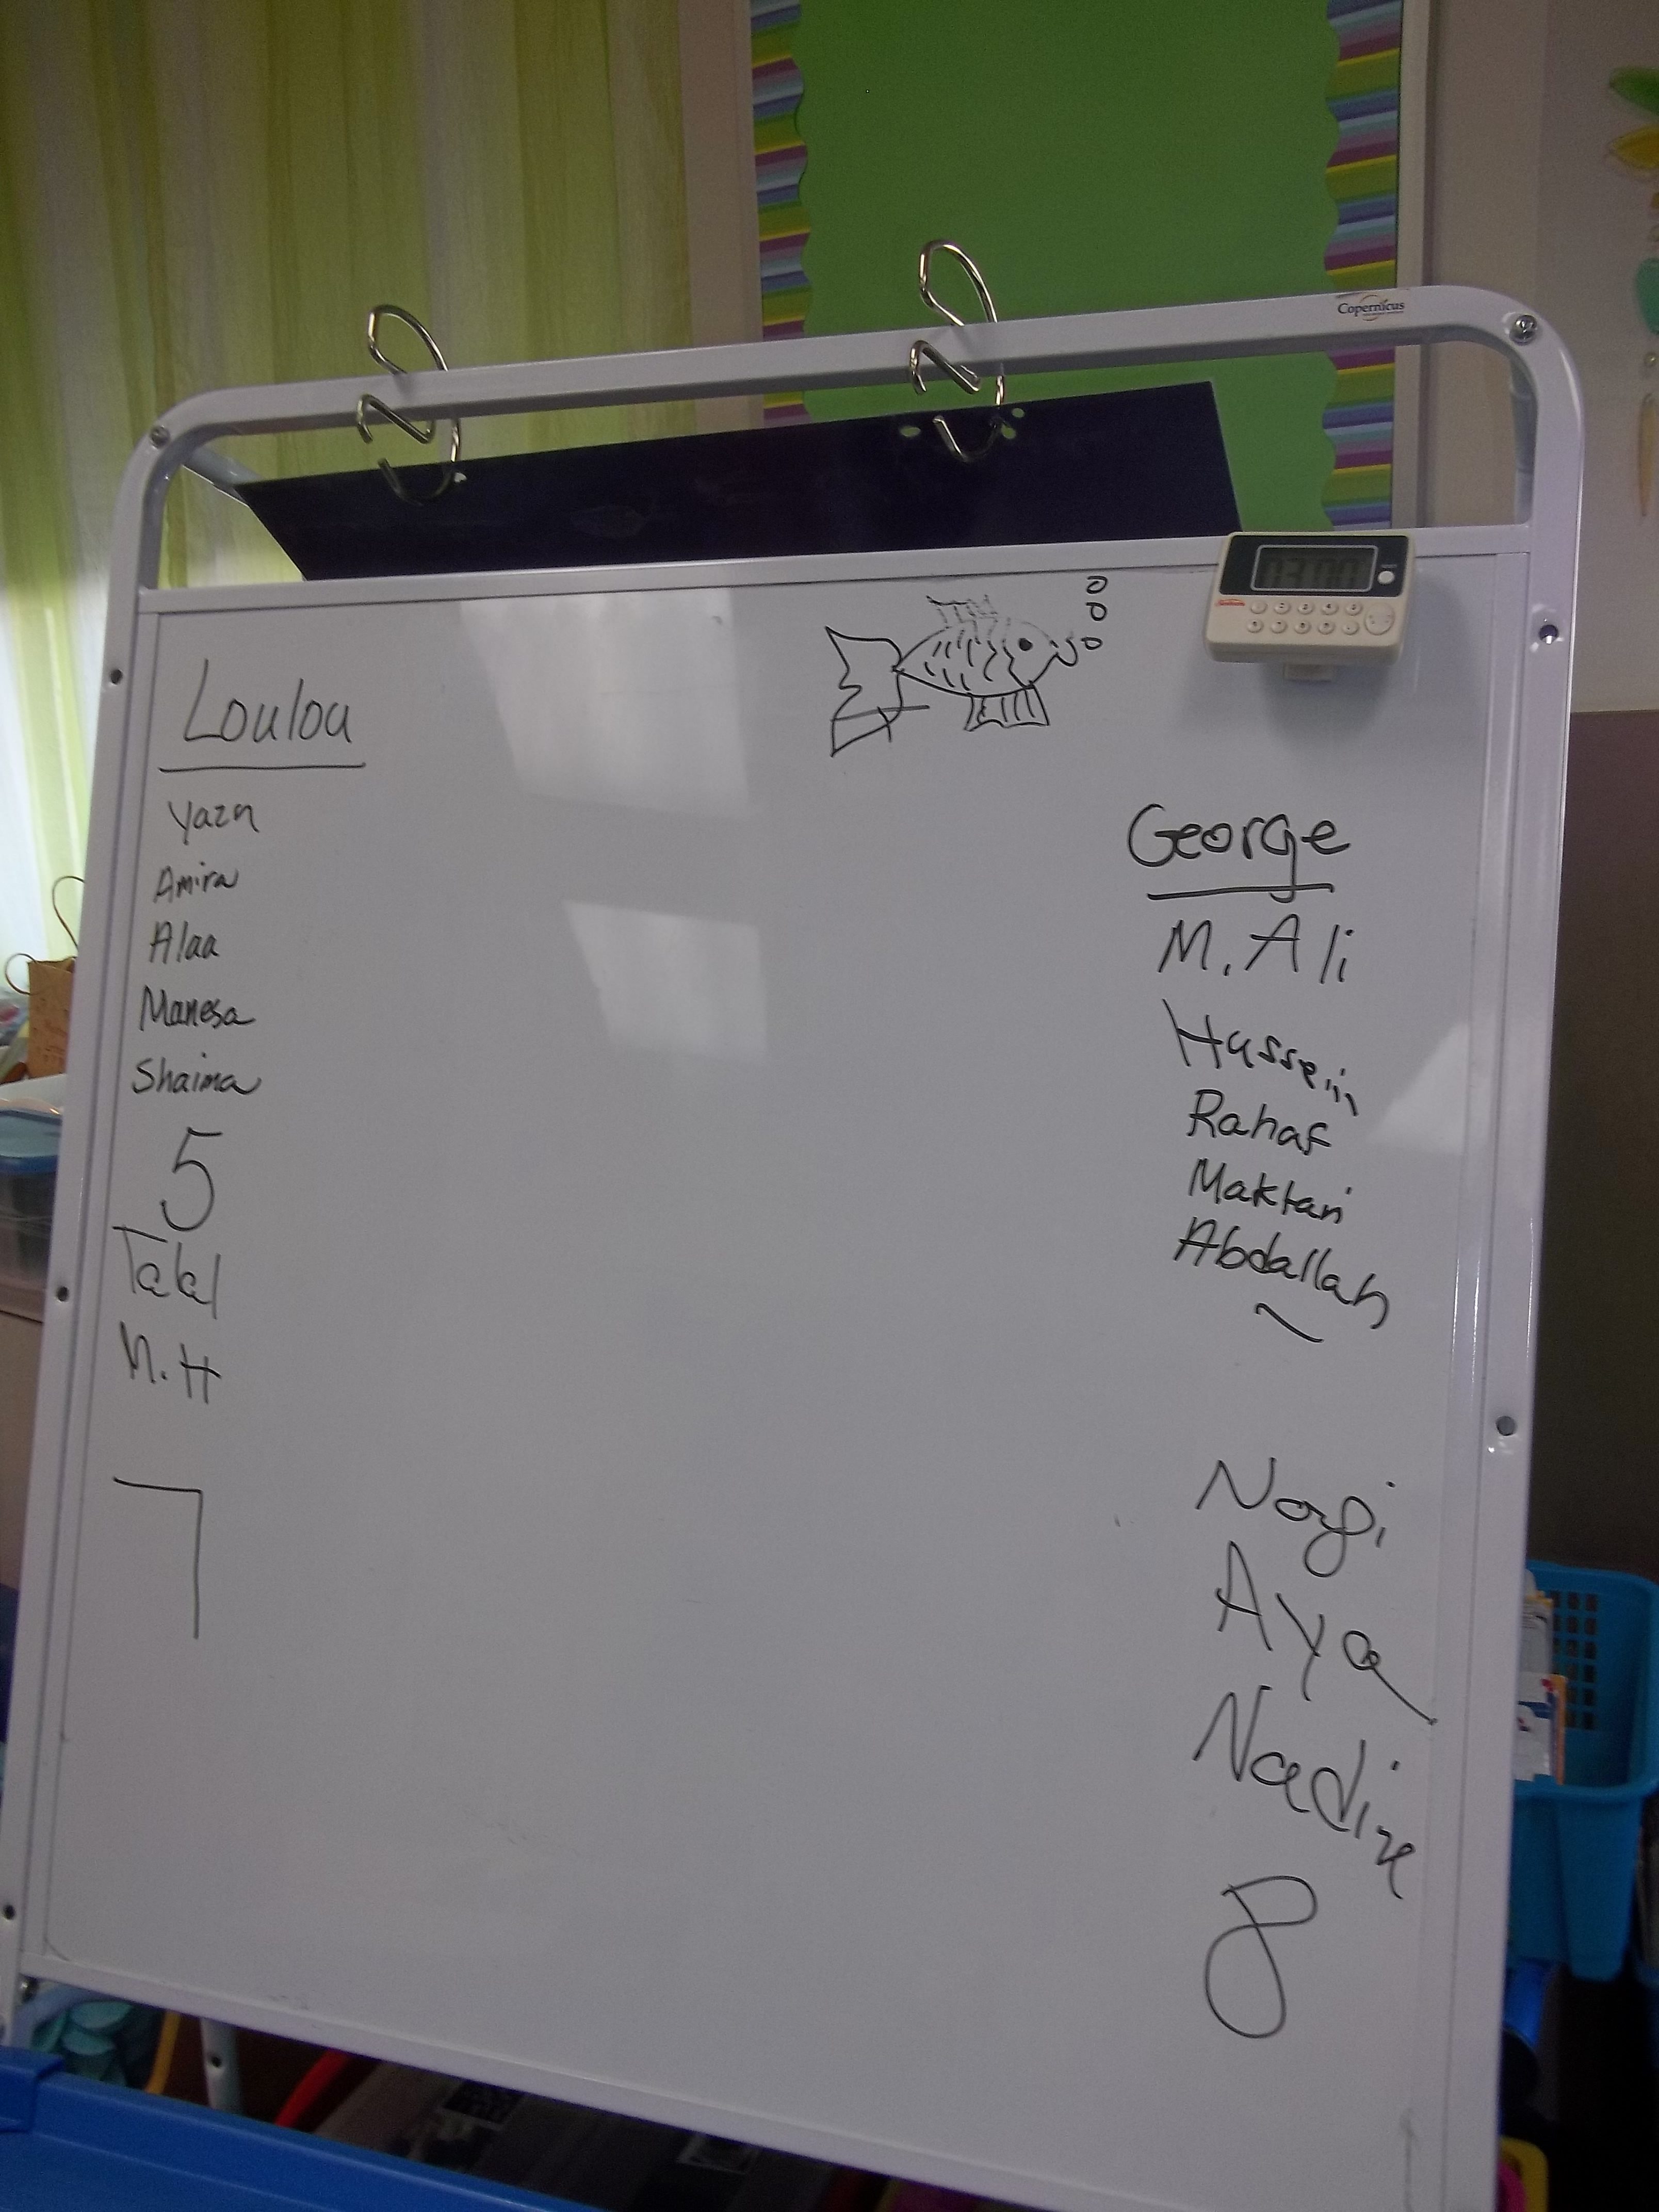 Copernicus
03:00
Loulou
Yazn
Amira
Alaa
Manesa
Shaima
5
Talal
M.H
7
George
M. Ali
Hussein
Rahaf
Maktari
Abdallah
Aya
Nadine
8